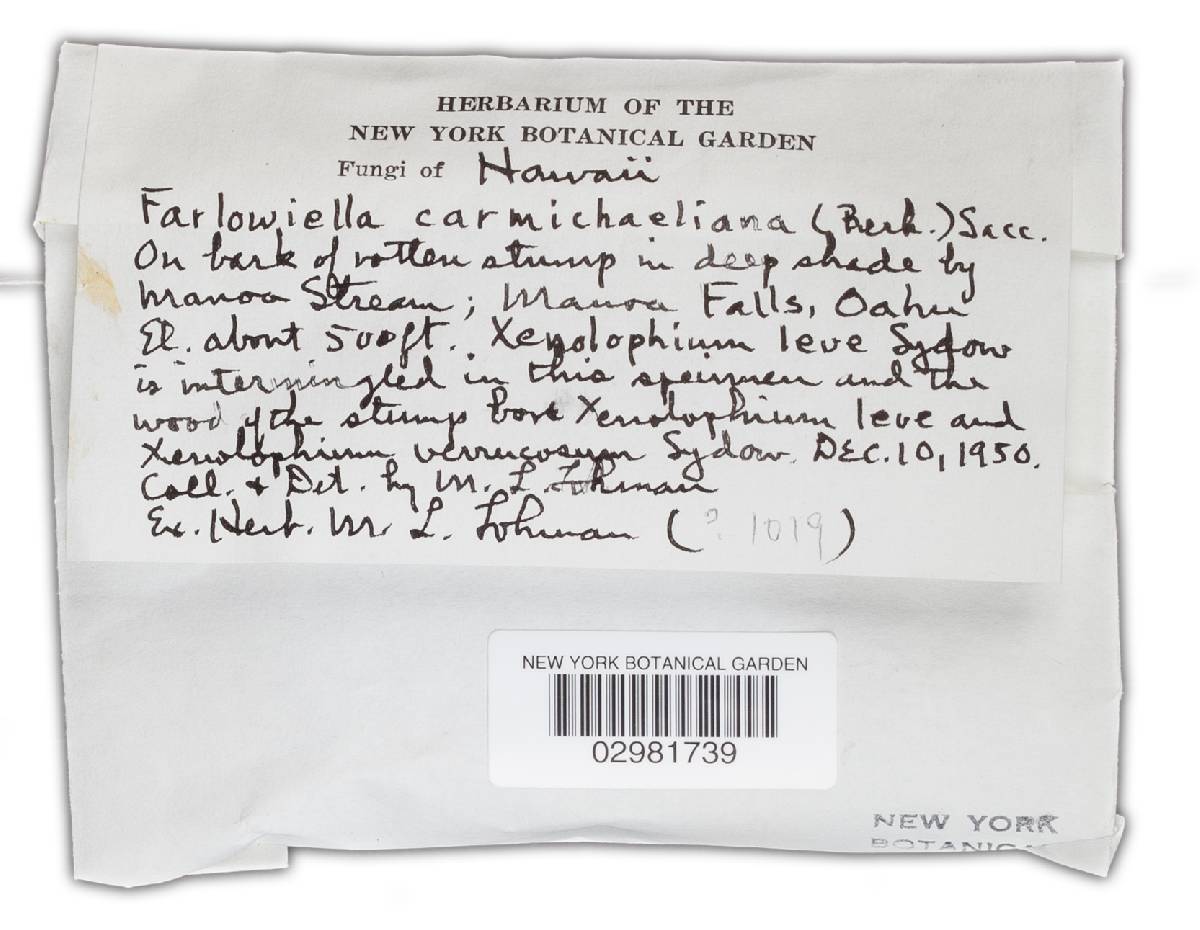 HERBARIUM OF THE
NEW YORK BOTANICAL GARDEN
Fungi of Hawaii
Farlowiella carmichaeliana (Berk.) Sacc.
On bark of rotten stump in deep shade by
Manoa Stream; Manoa Falls, Oahu
El. about 500ft. Xenolophium leve Sydow
is intermingled in this specimen and the
wood of the stump bore Xenolophium leve and
Xenolophium verrucosum Sydow. DEC. 10, 1950.
Coll. & Det. by M. L. Lohman
Ex. Herb. M. L. Lohman (? 1019)
NEW YORK BOTANICAL GARDEN
02981739
NEW YORK
BOTANICA